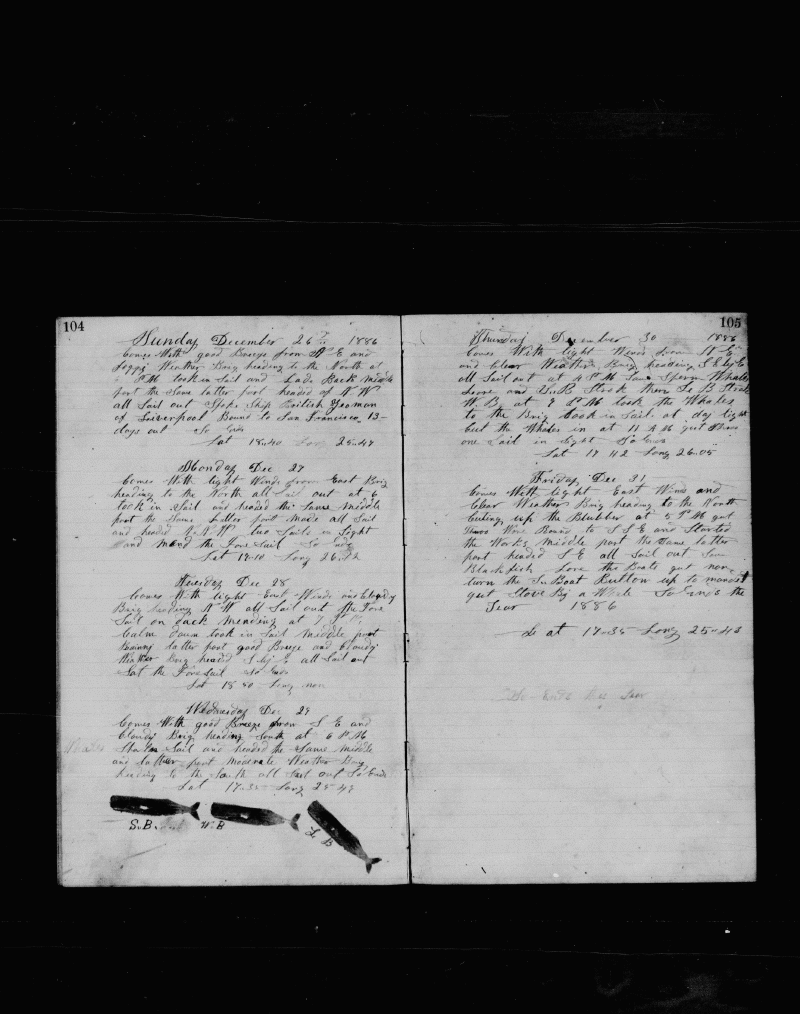 104
Sunday December 26th 1886
Comes With good Breeze from N E and
Foggy Weather Brig heading to the North at
6 PM took in Sail and Laid Back middle
part the Same latter part headed N W
all Sail out Spoke Ship British Yeoman
of Liverpool Bound to San Francisco 13-
days out So Ends
Lat 18-40 Long 25-47
Monday Dec 27
Comes With light Winds from East Brig
heading to the North all Sail out at 6
took in Sail and headed the Same middle
part the Same Latter part made all Sail
and headed N N W two Sails in Sight
and mend the Fore Sail So Ends
Lat 19-10 Long 26-12
Tuesday Dec 28
Comes With light East Winds and Cloudy
Brig heading N W all Sail out the Fore
Sail on dack mending at 7 P M
Calm Daun took in Sail middle part
Rainy latter part good Breeze and Cloudy
Weather Brig headed S by E all Sail out
Sat the Fore Sail So Ends
Lat 18-50 Long non
Wednesday Dec 29
Comes With good Breeze from S E and
Cloudy Brig heading South at 6 PM
Sail and headed the Same middle
and latter part moderate Weather Brig
heading to the South all Sail out So Ends
Lat 17-35 Long 25-49
S.B. W.B L B
105
Thursday December 30 1886
Comes With light Winds from N E
and Clear Weather Brig heading S E by E
all Sail out at 4 PM Saw Sperm Whales
Lowe and Struck them L B Struck
W B at 9 PM took the Whales
to the Brig took in Sail at day light
Cut the Whales in at 11 A M gut
one Sail in Sight So Ends
Lat 17 42 Long 26-05
Friday Dec 31
Comes With light East Wind and
Clear Weather Brig heading to the North
Cuting up the Blubber at 5 PM gut
Wore Round to S S E and Started
the Works Middle part the Same latter
part headed S E all Sail out Saw
Blackfish Lowe the Boats gut non
turn the Boat Buttom up to mend it
gut Stove By a Whale So Ends the
Year 1886
Lat 17-35 Long 25-43
So Ends Year